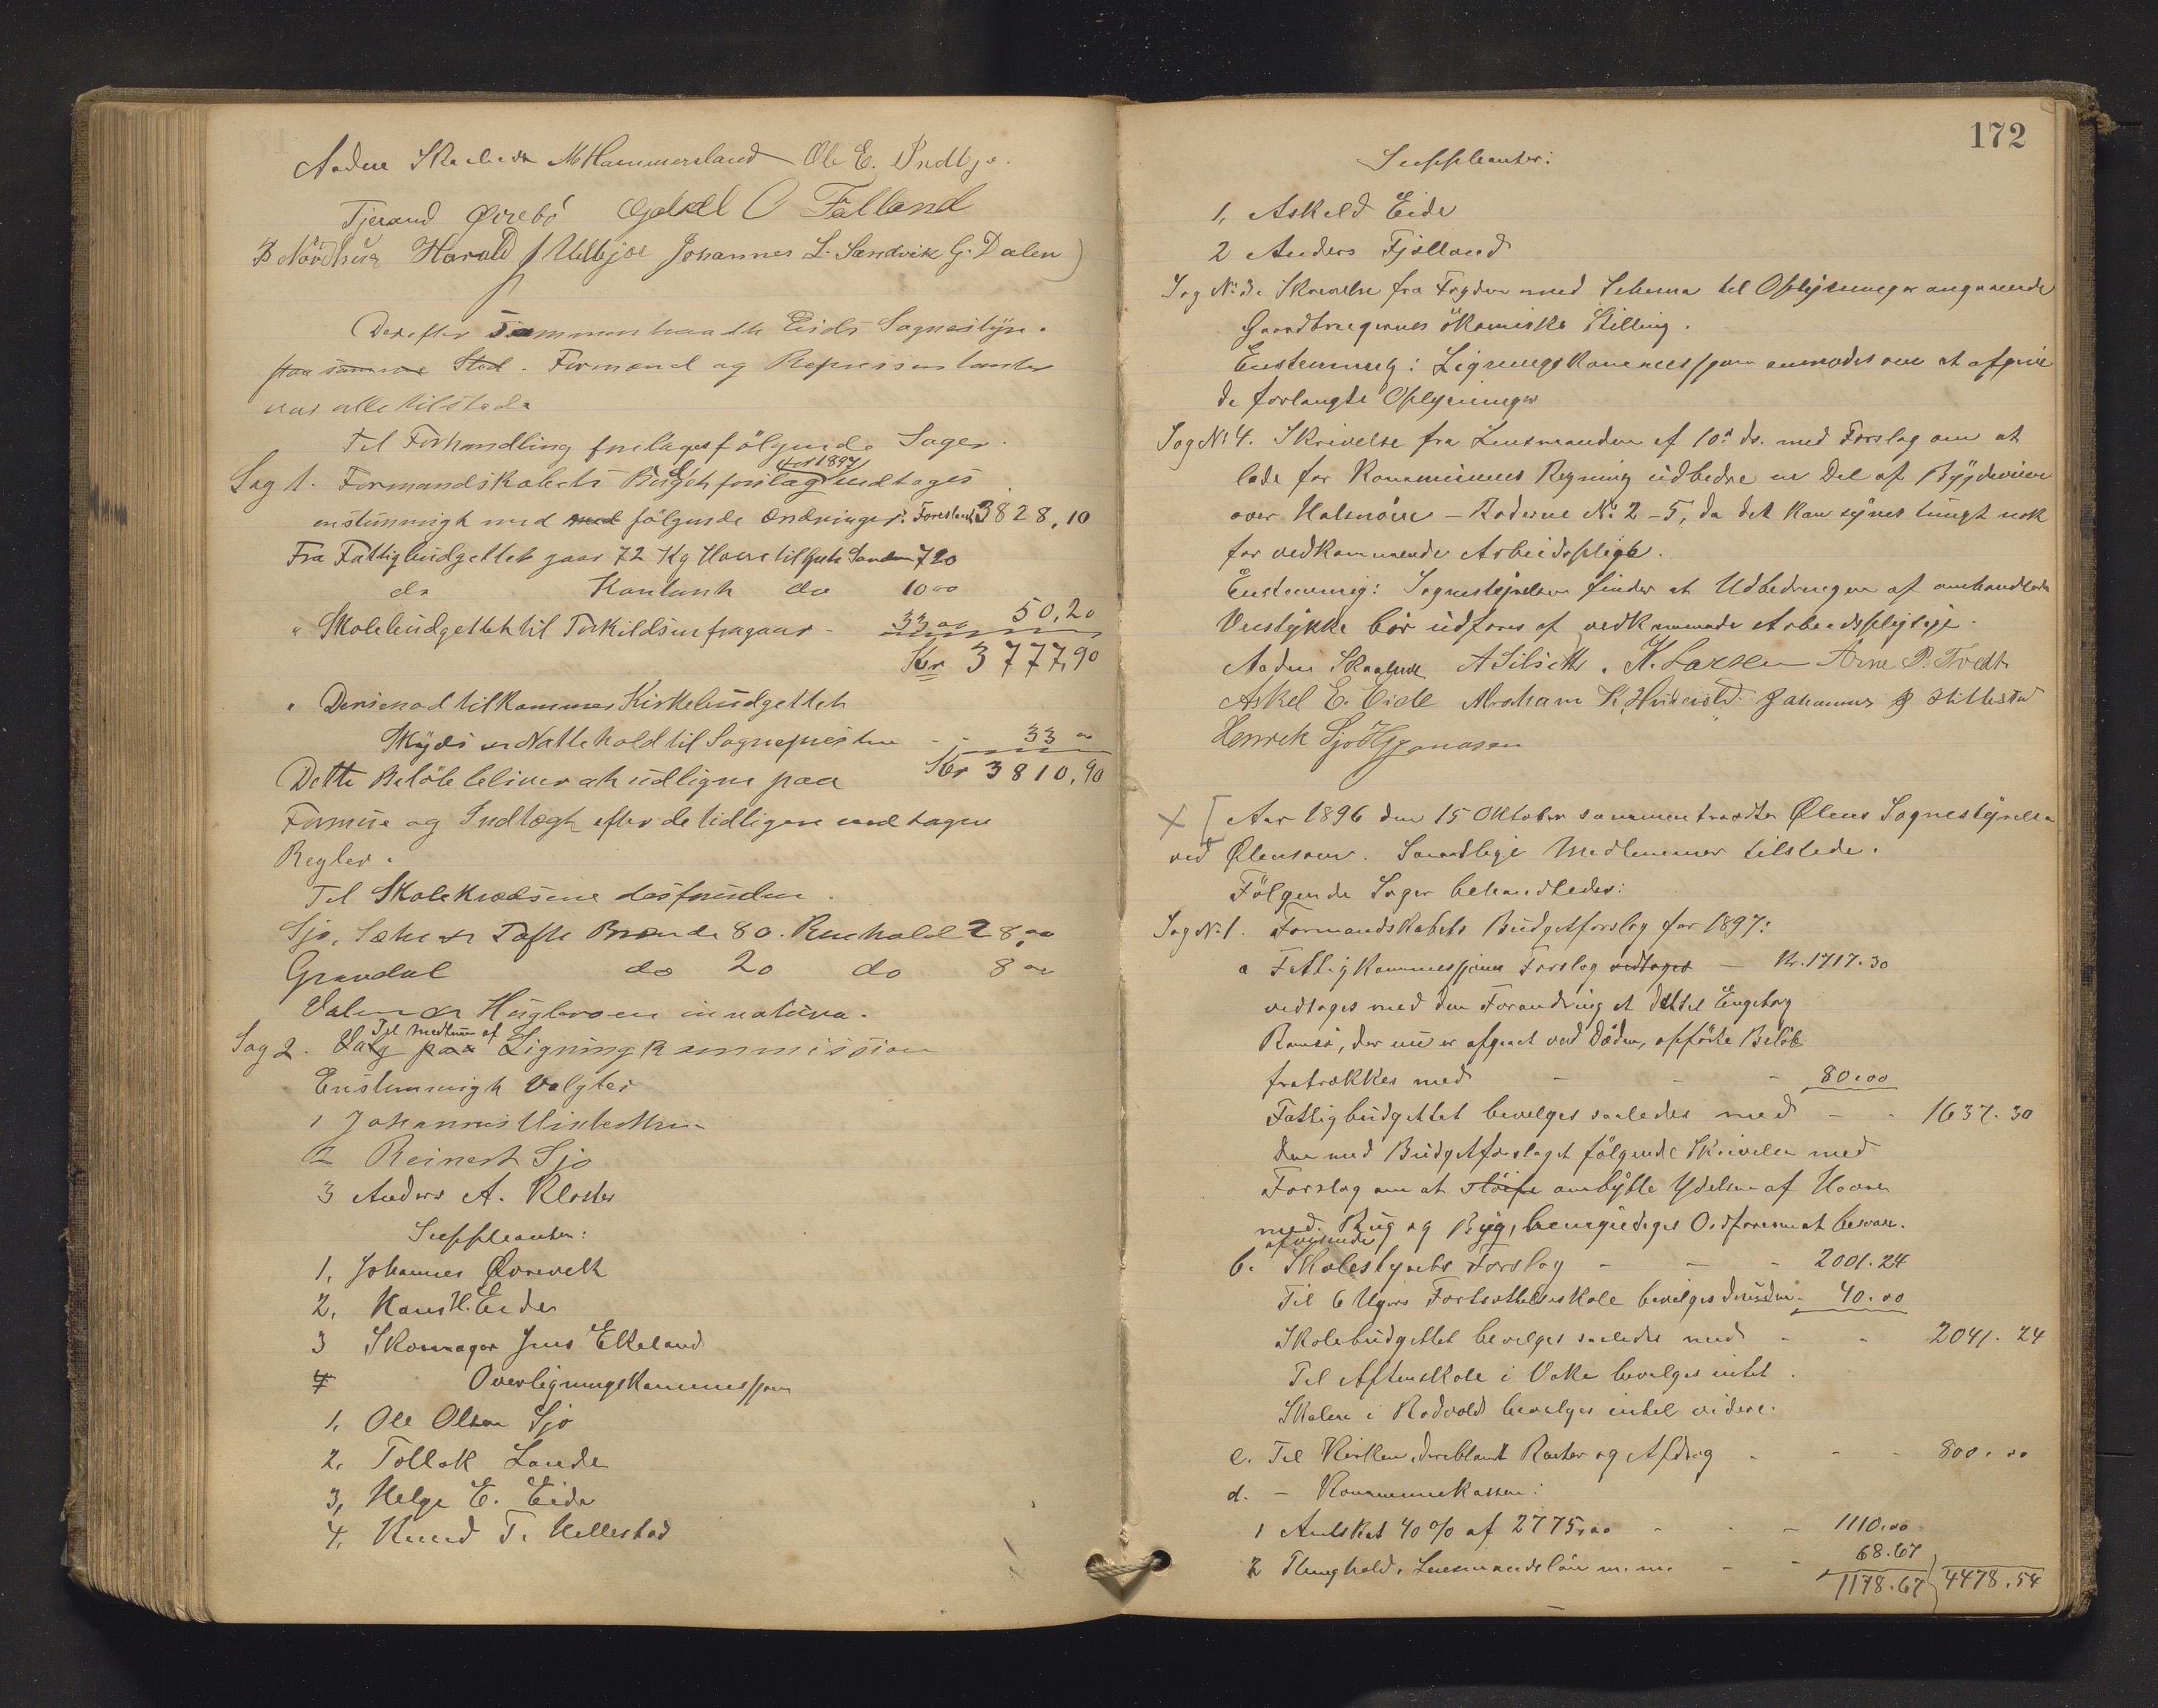 Aadne Skaalnes M Hammersland Ole E. Indbjo.
Tjerand Øvrebö O Fatland
B Nördhus Harald J Ulsbjoe Johannes L. Sandvik G. Dalen
Derefter Sammentraadte Eids Sognestÿre.
paa samme Sted. Formænd og Repressentanter
var alle tilstede
Til Forhandling foretages fölgende Sager.
for 1897
Sag 1. Formandskabets Budgetforslag vedtages
enstemmigt med med fölgende Ændringer: Foreslaaet 3828,10
Fra Fattigbudgettet gaar 72 Kg Havre til 720
do Kontant do 10 00
" Skolebudgettet til Torkildsen fragaar - 33 00 50,20
Kr 3777,90
" Desienod tilkommer Kirkebudgettet
Skyds og Nattehold til Sognepresten - - 33 00
Dette Belöb bliver at udligne paa Kr 3810,90
Formue og Indtægt efter de tidligere vedtagne
Regler.
Til Skolekredsene desforuden.
Sjo, Sæhe og Tofte Brænde 80. Renhold 28,00
Grøndal do 20 do 8 00
Valen og Huglavoen in natura.
Til Medlem af
Sag 2. Valg paa Ligningkommission
Enstemmigt Valgtes
1 Johannes
2 Reinert Sjo
3 Anders A. Kloster
Suppleanter:
1, Johannes Øvrevik
2, Hans H. Eide
3 Skomager Jens Ekeland
4 Overligningskommission
1, Ole Olson Sjo
2, Tollak Lande
3, Helge E. Eide
4, Knud T. Hellestad
172
Suppleanter:
1, Askild Eide
2 Anders Fjölland
Sag No 3. Skrivelse fra Fogden med Schema til Oplysninger angaaende
Gaardbrugernes ökomiske Stilling.
Enstemmig: Ligningskommissjonen anmodes om at afgive
de forlangte Oplysninger
Sag No 4. Skrivelse fra Lensmanden af 10de ds. med Forslag om at
lade for Kommunens Regning udbedre en Del af Bÿgdeveien
over Halsnöen - Roderne No 2-5, da det kan sÿnes tungt nok
for vedkommende Arbeidspligt.
Enstemmig: Sognestyrelsen finder at Udbedringen af omhandlede
Veistÿkke bör udföres af vedkommende Arbeidspligtige.
Aadne Skaalnes A Silseth. K. Larsen Arne P. Tvedt
Askel E. Eide Abraham K. Hidersold. Johannes J Hillestad
Henrik Sjo
X [ Aar 1896 den 15 Oktober sammentraadte Ølens Sognestÿrelse
ved Ølensøen. Samtlige Medlemmer tilstede.
Fölgende Sager behandledes:
Sag No 1. Formandskabets Budgetforslag for 1897:
a Fattigkommissjonens Forslag vedtages - Kr. 1717.30
vedtages med den Forandring at det til Engeborg
Ramsö, der nu er afgaaet ved Döden, opförte Belöb
fratrækkes med - - - 80.00
Fattigbudgettet bevilges saaledes med - - 1637.30
Den med Budgetforslaget fölgende Skrivelse med
Forslag om at slöife ombÿtte Ydelsen af Havre
med Rug og Bÿg, bemyndiges Ordföreren at besvare.
afvisende
b. Skolestyrets Forslag - - - 2001.24
Til 6 Ugers Fortsættelseskole bevilges desuden - 40.00
Skolebudgettet bevilges saaledes med - - 2041.24
Til Aftenskole i Vake bevilges intet.
Skolen i Rødvold bevilges intet videre.
c. Til Kirken, deriblandt Renter og Afdrag - - - 800.00
d. - Kommunekassen:
1 Amtskat 40% af 2775,00 - - - 1110.00
2 Thinghold, Lensmandslön m. m. - - 68.67
1178.67 } 4478,54